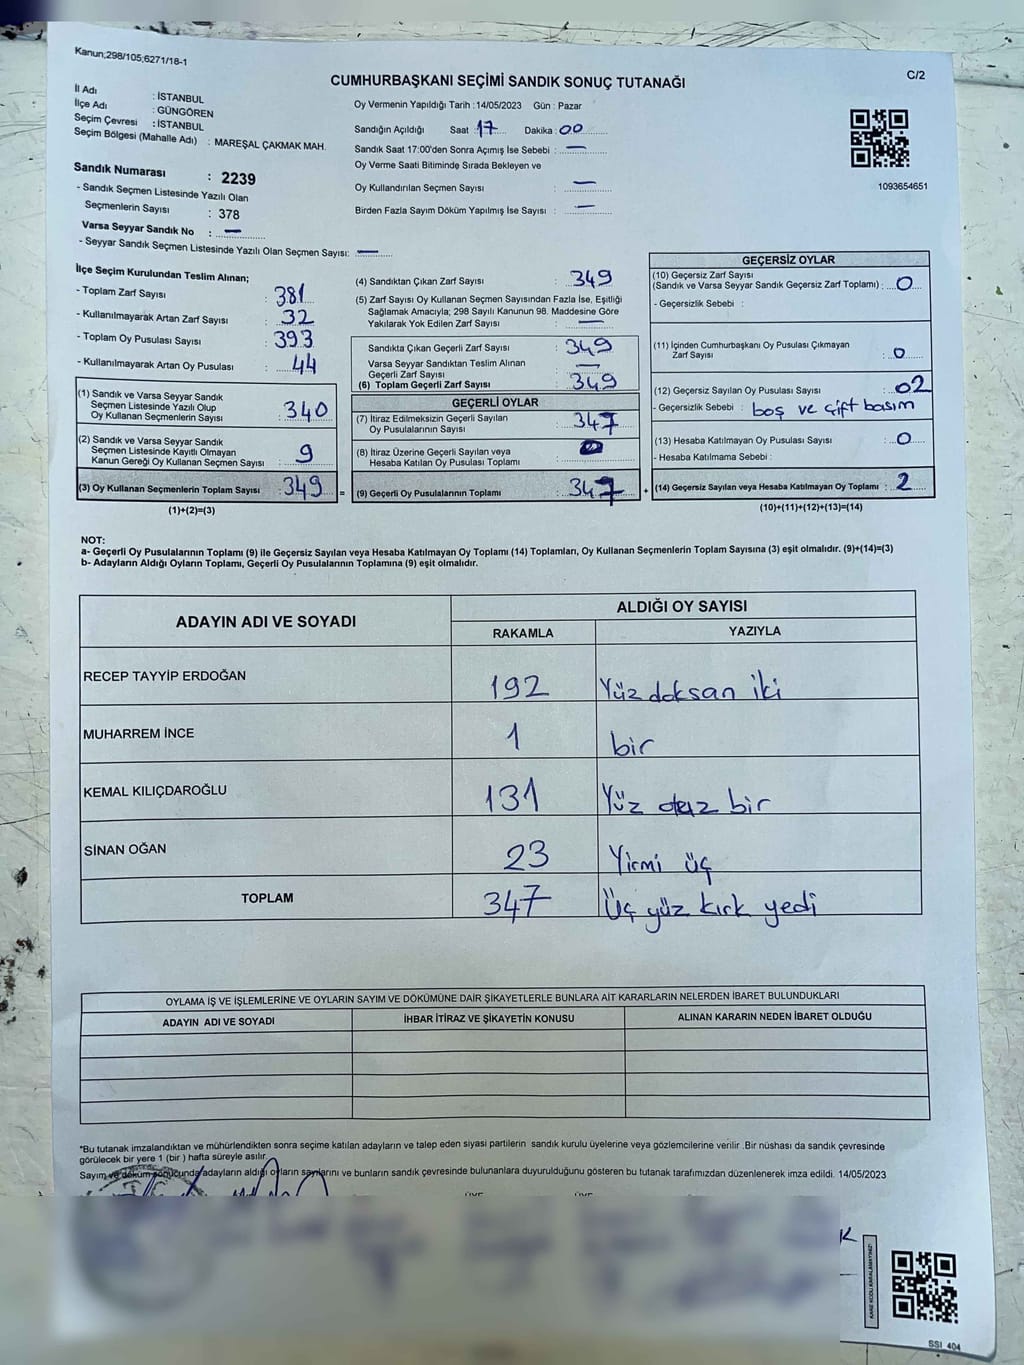 Kanun;298/105;6271/18-1
CUMHURBAŞKANI SEÇİMİ SANDIK SONUÇ TUTANAĞI
C/2
İl Adı : İSTANBUL
İlçe Adı : GÜNGÖREN
Seçim Çevresi : İSTANBUL
Seçim Bölgesi (Mahalle Adı) : MAREŞAL ÇAKMAK MAH.
Sandık Numarası : 2239
- Sandık Seçmen Listesinde Yazılı Olan
Seçmenlerin Sayısı : 378
Varsa Seyyar Sandık No : —
- Seyyar Sandık Seçmen Listesinde Yazılı Olan Seçmen Sayısı: —
Oy Vermenin Yapıldığı Tarih : 14/05/2023 Gün : Pazar
Sandığın Açıldığı Saat : 17 Dakika : 00
Sandık Saat 17:00'den Sonra Açımış İse Sebebi : —
Oy Verme Saati Bitiminde Sırada Bekleyen ve
Oy Kullandırılan Seçmen Sayısı : —
Birden Fazla Sayım Döküm Yapılmış İse Sayısı : —
1093654651
İlçe Seçim Kurulundan Teslim Alınan;
- Toplam Zarf Sayısı : 381
- Kullanılmayarak Artan Zarf Sayısı : 32
- Toplam Oy Pusulası Sayısı : 393
- Kullanılmayarak Artan Oy Pusulası : 44
(1) Sandık ve Varsa Seyyar Sandık
Seçmen Listesinde Yazılı Olup
Oy Kullanan Seçmenlerin Sayısı : 340
(2) Sandık ve Varsa Seyyar Sandık
Seçmen Listesinde Kayıtlı Olmayan
Kanun Gereği Oy Kullanan Seçmen Sayısı : 9
(3) Oy Kullanan Seçmenlerin Toplam Sayısı : 349 =
(1)+(2)=(3)
(4) Sandıktan Çıkan Zarf Sayısı : 349
(5) Zarf Sayısı Oy Kullanan Seçmen Sayısından Fazla İse, Eşitliği
Sağlamak Amacıyla; 298 Sayılı Kanunun 98. Maddesine Göre
Yakılarak Yok Edilen Zarf Sayısı : —
Sandıkta Çıkan Geçerli Zarf Sayısı : 349
Varsa Seyyar Sandıktan Teslim Alınan
Geçerli Zarf Sayısı : —
(6) Toplam Geçerli Zarf Sayısı : 349
GEÇERLİ OYLAR
(7) İtiraz Edilmeksizin Geçerli Sayılan
Oy Pusulalarının Sayısı : 347
(8) İtiraz Üzerine Geçerli Sayılan veya
Hesaba Katılan Oy Pusulası Toplamı :
(9) Geçerli Oy Pusulalarının Toplamı : 347 +
GEÇERSİZ OYLAR
(10) Geçersiz Zarf Sayısı
(Sandık ve Varsa Seyyar Sandık Geçersiz Zarf Toplamı) : 0
- Geçersizlik Sebebi :
(11) İçinden Cumhurbaşkanı Oy Pusulası Çıkmayan
Zarf Sayısı : 0
(12) Geçersiz Sayılan Oy Pusulası Sayısı : 02
- Geçersizlik Sebebi : boş ve çift basım
(13) Hesaba Katılmayan Oy Pusulası Sayısı : 0
- Hesaba Katılmama Sebebi :
(14) Geçersiz Sayılan veya Hesaba Katılmayan Oy Toplamı : 2
(10)+(11)+(12)+(13)=(14)
NOT:
a- Geçerli Oy Pusulalarının Toplamı (9) ile Geçersiz Sayılan veya Hesaba Katılmayan Oy Toplamı (14) Toplamları, Oy Kullanan Seçmenlerin Toplam Sayısına (3) eşit olmalıdır. (9)+(14)=(3)
b- Adayların Aldığı Oyların Toplamı, Geçerli Oy Pusulalarının Toplamına (9) eşit olmalıdır.
ADAYIN ADI VE SOYADI
ALDIĞI OY SAYISI
RAKAMLA YAZIYLA
RECEP TAYYİP ERDOĞAN 192 Yüz doksan iki
MUHARREM İNCE 1 bir
KEMAL KILIÇDAROĞLU 131 Yüz otuz bir
SİNAN OĞAN 23 Yirmi üç
TOPLAM 347 Üç yüz kırk yedi
OYLAMA İŞ VE İŞLEMLERİNE VE OYLARIN SAYIM VE DÖKÜMÜNE DAİR ŞİKAYETLERLE BUNLARA AİT KARARLARIN NELERDEN İBARET BULUNDUKLARI
ADAYIN ADI VE SOYADI İHBAR İTİRAZ VE ŞİKAYETİN KONUSU ALINAN KARARIN NEDEN İBARET OLDUĞU
*Bu tutanak imzalandıktan ve mühürlendikten sonra seçime katılan adayların ve talep eden siyasi partilerin sandık kurulu üyelerine veya gözlemcilerine verilir .Bir nüshası da sandık çevresinde
görülecek bir yere 1 (bir ) hafta süreyle asılır.
Sayım ve döküm sonucunda adayların aldığı oyların sayılarını ve bunların sandık çevresinde bulunanlara duyurulduğunu gösteren bu tutanak tarafımızdan düzenlenerek imza edildi. 14/05/2023
SSİ 404